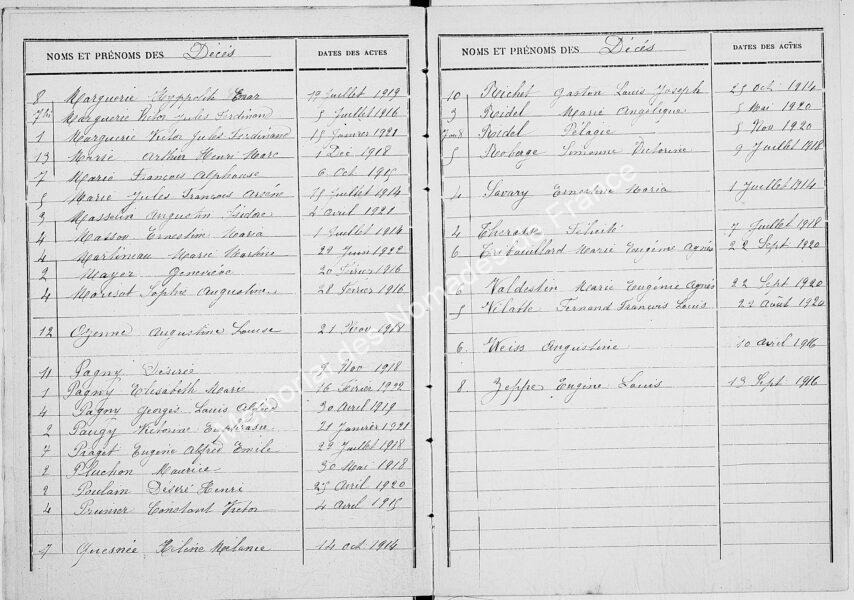 NOMS ET PRÉNOMS DES Décés DATES DES ACTES
8 Marguerie Hyppolite 19 Juillet 1919
7 bis Marguerie Victor Jules Ferdinand 5 Juillet 1916
1 Marguerie Victor Jules Ferdinand 15 Janvier 1921
13 Marie Arthur Henri Marc 1 Déc 1918
7 Marie François Alphonse 6 Oct 1915
5 Marie Jules François Arsène Juillet 1914
3 Augustin Isidore 2 Avril 1921
4 Masson Ernestine Maria 1 Juillet 1914
4 Martineau Marie Martine 22 Juin 1922
2 Mayer Geneviève 20 Février 1916
4 Sophie Augustine 28 Février 1916
12 Ozenne Augustine Louise 21 Nov 1918
11 Pagny Désirée Nov 1918
1 Pagny Elisabeth Marie 16 Février 1922
4 Pagny Georges Louis 30 Avril 1919
2 Victorine Euphrasie 21 Janvier 1921
7 Piaget Eugène Alfred Emile 22 Juillet 1918
2 Pluchon Maurice 30 Mai 1918
2 Poulain Désiré Henri 25 Avril 1920
4 Prunier Constant Victor 4 Avril 1915
7 Quesnée Hélène Mélanie 14 Oct 1914
NOMS ET PRÉNOMS DES Décés DATES DES ACTES
10 Richet Gaston Louis Joseph 25 Oct 1914
3 Riidel Marie Angélique 5 Mai 1920
Riidel Pélagie 5 Nov 1920
5 Roberge Simonne Victorine 9 Juillet 1918
4 Savary Ernestine Maria 1 Juillet 1914
4 Félicité 7 Juillet 1918
6 Tribouillard Marie Eugénie Agnès 22 Sept 1920
6 Valdestin Marie Eugénie Agnès 22 Sept 1920
5 Vilatte Fernand François Louis 22 Août 1920
6 Weiss Augustine 10 Avril 1916
8 Zeppe Eugène Louis 13 Sept 1916
Mémorial des Nomades de France